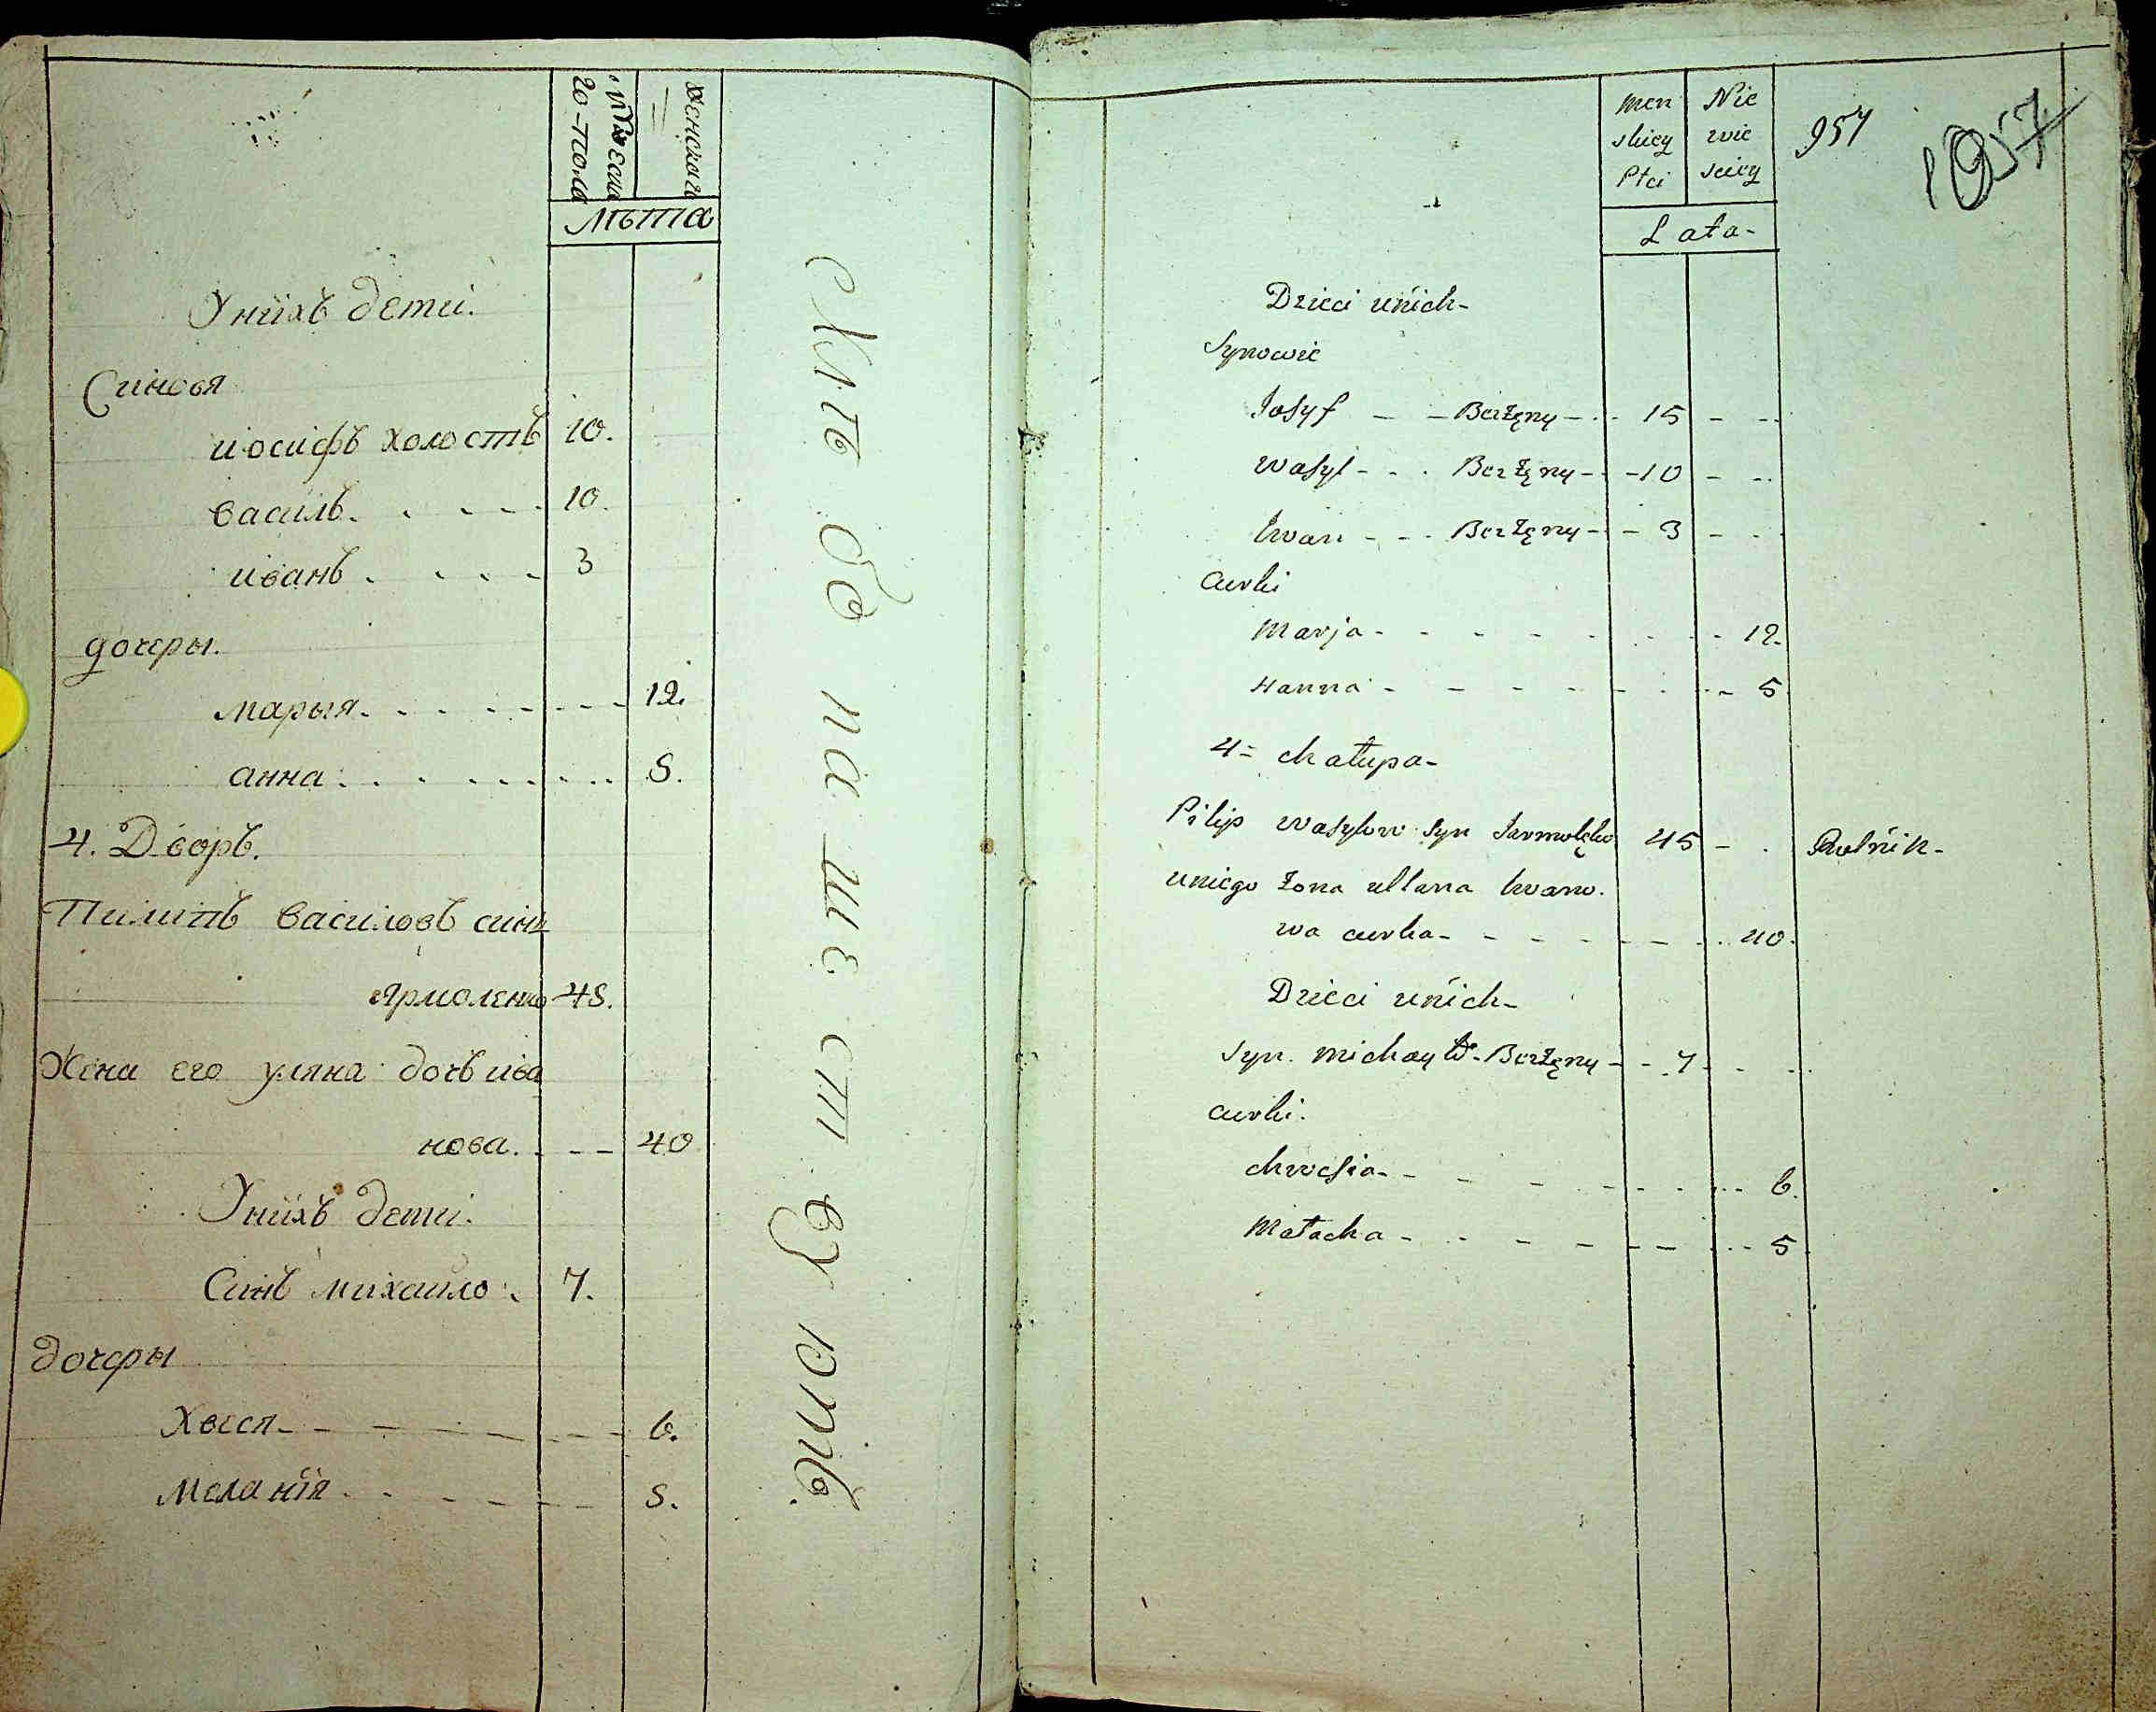 мужеска
го пола
женскаго
Лѣта
Унихъ дети.
Синовя
иосифъ холостъ 10.
василь. 10.
иванъ. 3
дочеры.
марыя. 12.
анна. 5.
4. Дворъ.
Пилипъ василовъ синъ
Ярмоленко 45.
Жена его уляна дочь ива
нова. 40
Унихъ дети.
Синъ михайло. 7.
дочеры
Хвеся 6.
Мелания 5.
Хлѣбопашествуютъ.
męn Nie
skiey wie
Płci sciey
957
Lata-
Dzieci unich-
Synowie
Josyf - - Bezżęny - 15 - -
wasyl - - Bezżęny - 10 - -
Iwan - - Bezżęny - 3 - -
Curki
Marja - 12.
Hanna - 5
4= chałupa-
Pilip wasylow syn Jarmolęko 45 - . Rolnik-
uniego żona ullana Iwano.
wa curka - 40.
Dzieci unich-
Syn. michayło - Bezżęny - 7
curki.
chwesia - 6.
Małacha - 5